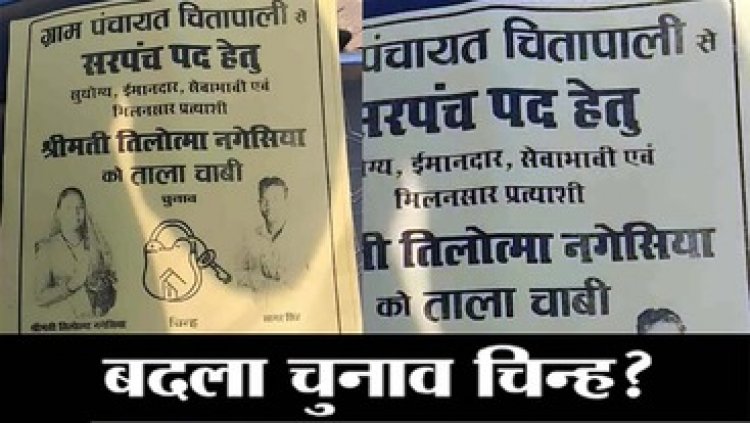 ग्राम पंचायत चितापाली से
सरपंच पद हेतु
सुयोग्य, ईमानदार, सेवाभावी एवं
मिलनसार प्रत्याशी
श्रीमती तिलोत्मा नगेसिया
को ताला चाबी
चुनाव
श्रीमती तिलोत्मा नगेसिया
चिन्ह
पंचायत चितापाली से
सरपंच पद हेतु
ग्य, ईमानदार, सेवाभावी एवं
मिलनसार प्रत्याशी
ती तिलोत्मा नगेसिया
को ताला चाबी
बदला चुनाव चिन्ह?